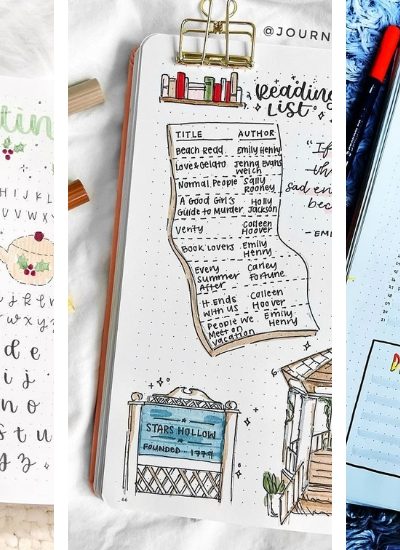 @JOURN
Reading
List
TITLE AUTHOR
Beach Read Emily Henry
Love & Gelato Jenna Evans
Welch
Normal People Sally
Rooney
A Good Girl's Holly
Guide to Murder Jackson
Verity Colleen
Hoover
Book Lovers Emily
Henry
Every Carley
Summer Fortune
After
It Ends Colleen
With Us Hoover
People We Emily
Meet on Henry
Vacation
"If
th
sad en
bec
-EM
STARS HOLLOW
FOUNDED 1779
tin
H I J K L
U V W X Y
d e
i j
n o
s t u
y z